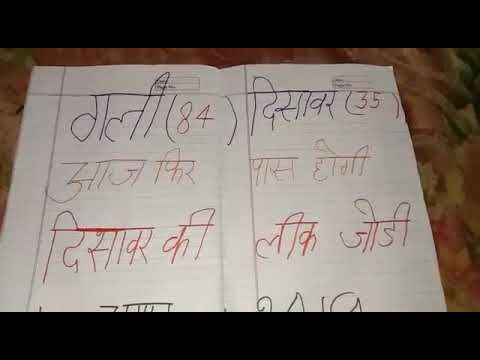 गली (84) दिसावर (35)
आज फिर पास होगी
दिसावर की लीक जोडी